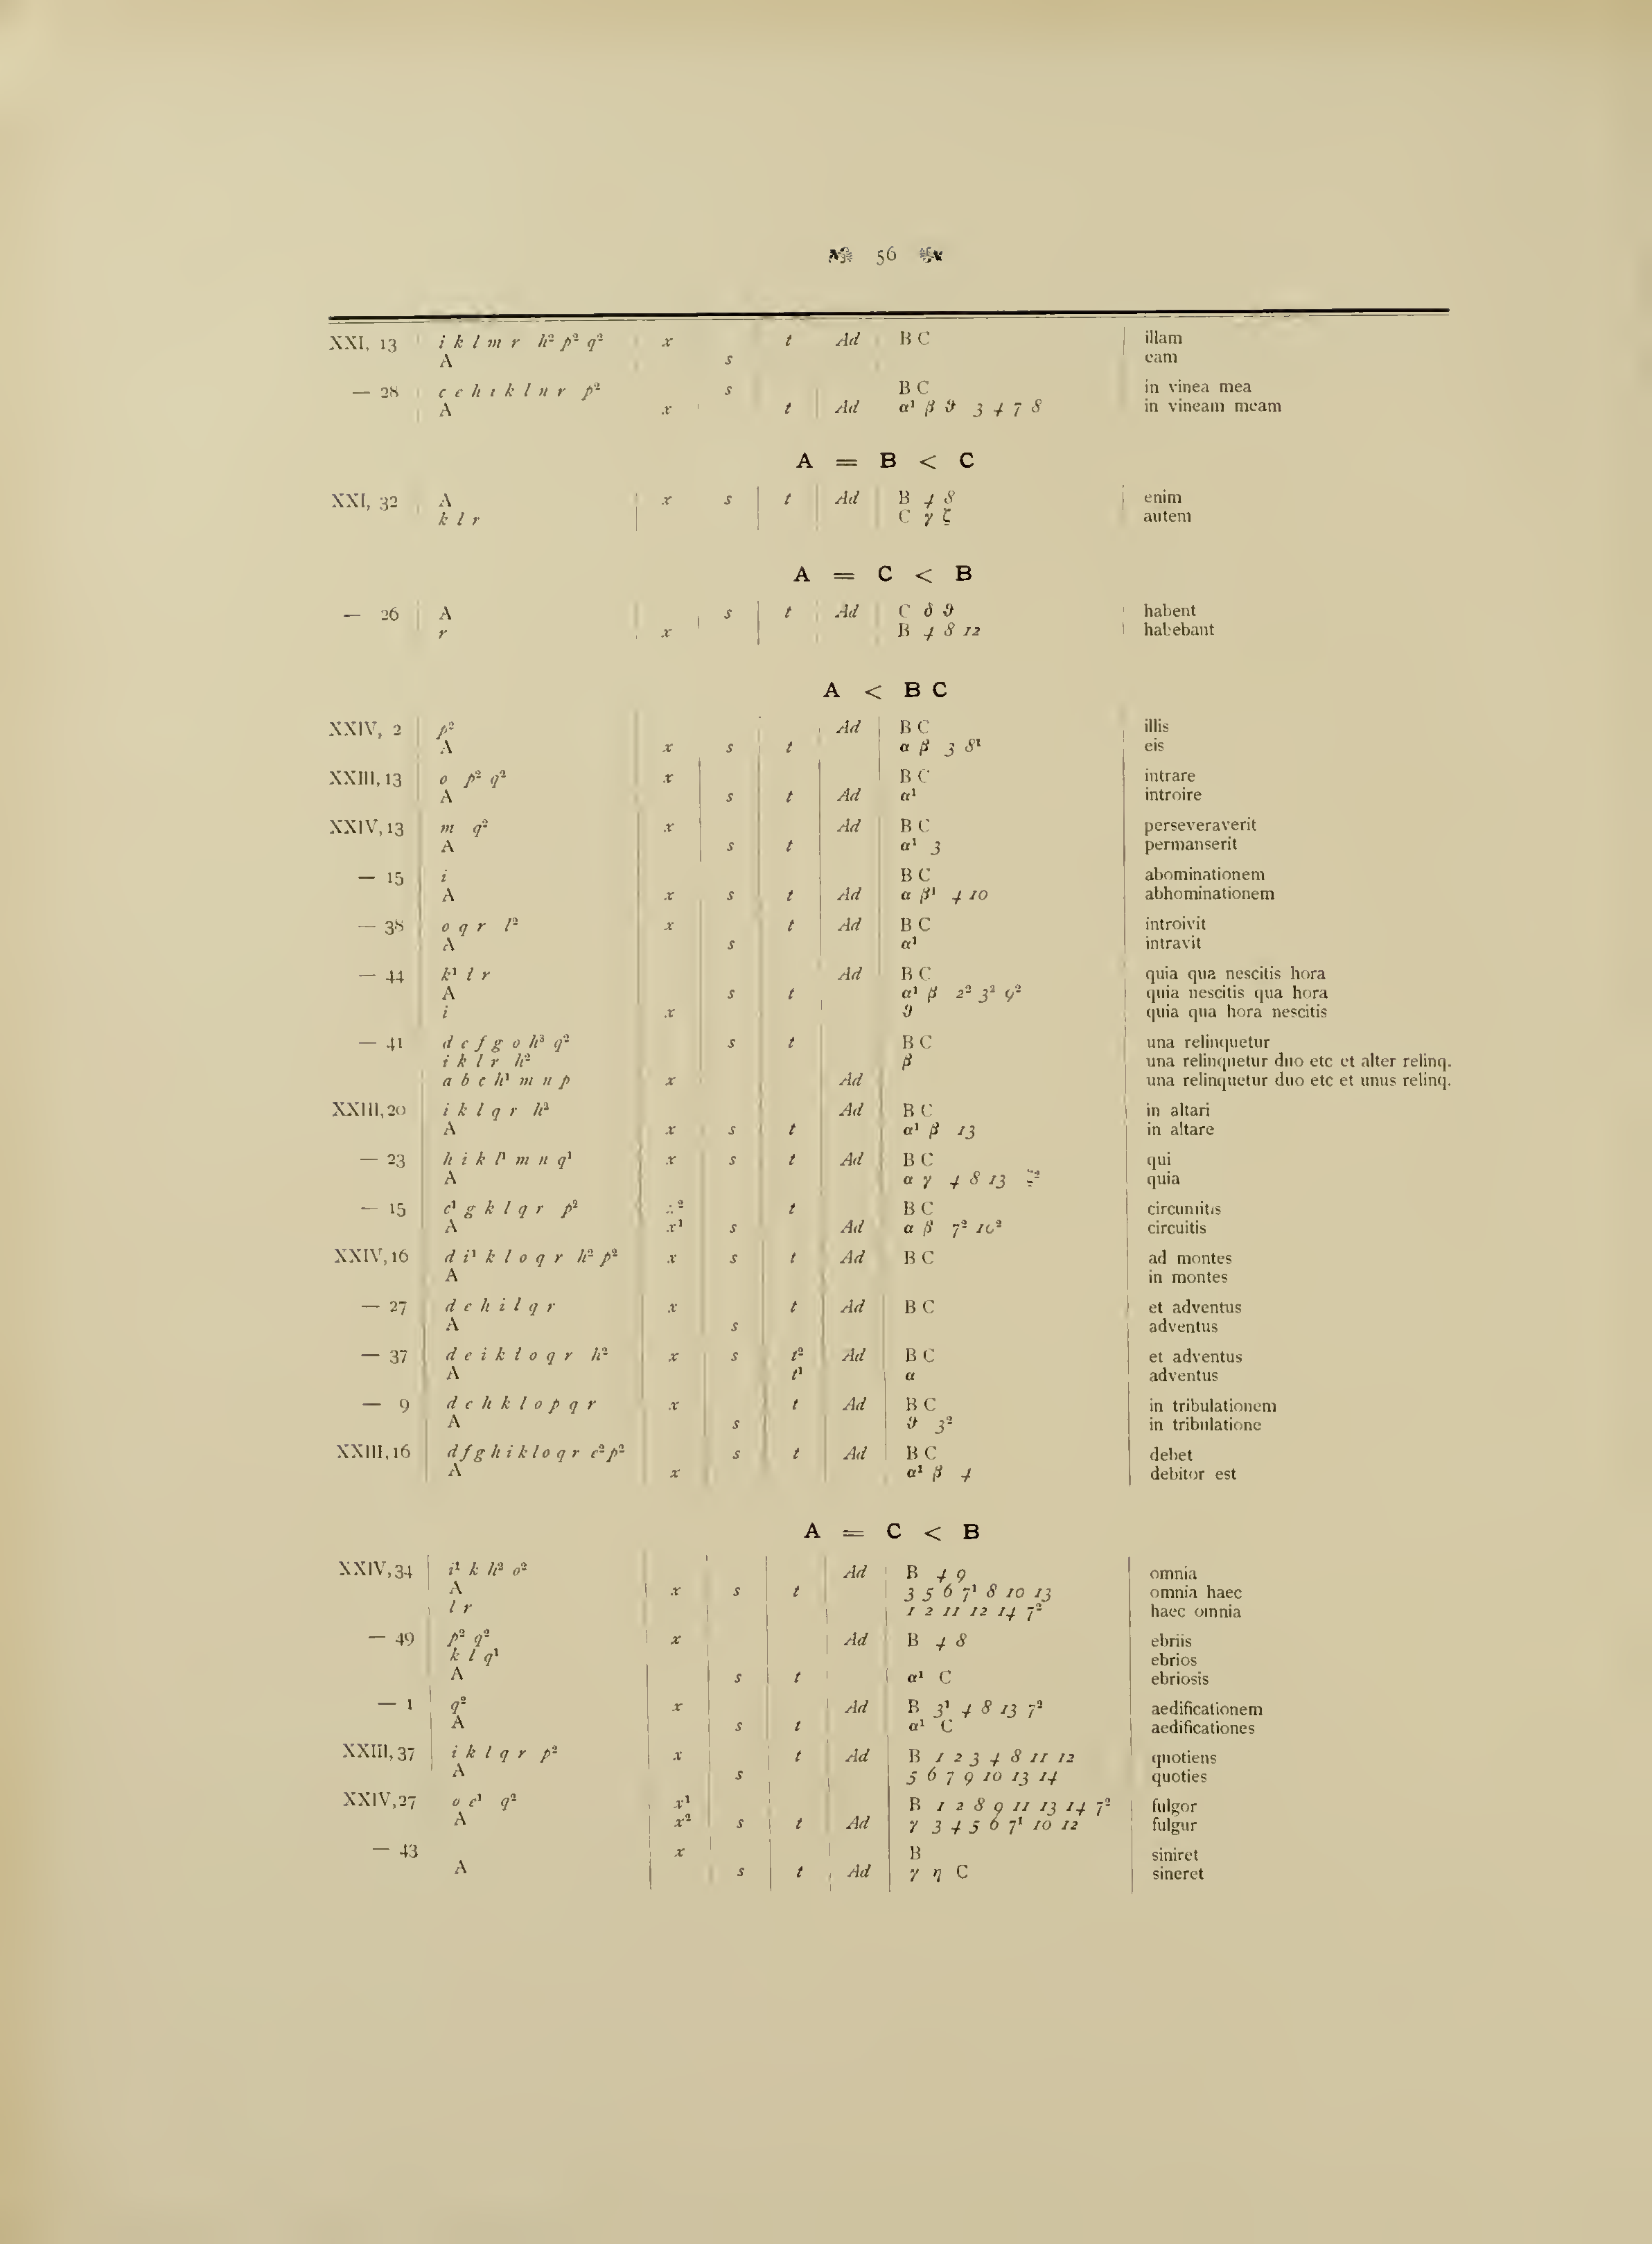 56
XXI, 13 i k l m r h² p² q² x t Ad B C illam
A s eam
— 28 c e h i k l n r p² s B C in vinea mea
A x t Ad α¹ β ϑ 3 4 7 8 in vineam meam
A = B < C
XXI, 32 A x s t Ad B 4 8 enim
k l r C γ ζ autem
A = C < B
— 26 A s t Ad C δ ϑ habent
r x B 4 8 12 habebant
A < B C
XXIV, 2 p² Ad B C illis
A x s t α β 3 8¹ eis
XXIII, 13 o p² q² x B C intrare
A s t Ad α¹ introire
XXIV, 13 m q² x Ad B C perseveraverit
A s t α¹ 3 permanserit
— 15 i B C abominationem
A x s t Ad α β¹ 4 10 abhominationem
— 38 o q r l² x t Ad B C introivit
A s α¹ intravit
— 44 k¹ l r Ad B C quia qua nescitis hora
A s t α¹ β 2² 3² 9² quia nescitis qua hora
i x ϑ quia qua hora nescitis
— 41 d e f g o h³ q² s t B C una relinquetur
i k l r h² β una relinquetur duo etc et alter relinq.
a b c h¹ m n p x Ad una relinquetur duo etc et unus relinq.
XXIII, 20 i k l q r h² Ad B C in altari
A x s t α¹ β 13 in altare
— 23 h i k l¹ m n q¹ x s t Ad B C qui
A α γ 4 8 13 quia
— 15 c¹ g k l q r p² t B C circumitis
A x¹ s Ad α β 7² 10² circuitis
XXIV, 16 d i¹ k l o q r h² p² x s t Ad B C ad montes
A in montes
— 27 d e h i l q r x t Ad B C et adventus
A s adventus
— 37 d e i k l o q r h² x s t² Ad B C et adventus
A t¹ α adventus
— 9 d e h k l o p q r x t Ad B C in tribulationem
A s ϑ 3² in tribulatione
XXIII, 16 d f g h i k l o q r e² p² s t Ad B C debet
A x α¹ β 4 debitor est
A = C < B
XXIV, 34 i¹ k h² o² Ad B 4 9 omnia
A x s t 3 5 6 7¹ 8 10 13 omnia haec
l r 1 2 11 12 14 7² haec omnia
— 49 p² q² x Ad B 4 8 ebriis
k l q¹ ebrios
A s t α¹ C ebriosis
— 1 q² x Ad B 3¹ 4 8 13 7² aedificationem
A s t α¹ C aedificationes
XXIII, 37 i k l q r p² x t Ad B 1 2 3 4 8 11 12 quotiens
A s 5 6 7 9 10 13 14 quoties
XXIV, 27 o e¹ q² x¹ B 1 2 8 9 11 13 14 7² fulgor
A x² s t Ad γ 3 4 5 6 7¹ 10 12 fulgur
— 43 x B siniret
A s t Ad γ η C sineret